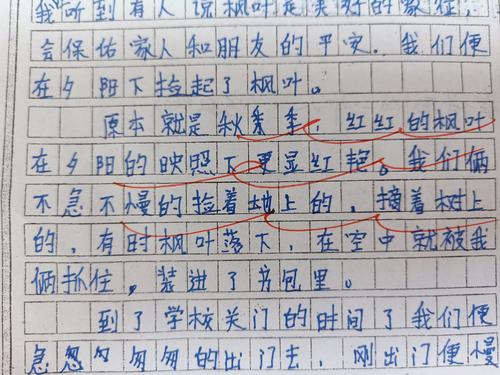 我听到有人说枫叶是美好的象征，
会保佑家人和朋友的平安．我们便
在夕阳下捡起了枫叶。
原本就是秋季，红红的枫叶
在夕阳的映照下更显红艳。我们俩
不急不慢的捡着地上的，摘着树上
的，有时枫叶落下，在空中就被我
俩抓住，装进了书包里。
到了学校关门的时间了我们便
急忽匆匆的出门去，刚出门便慢